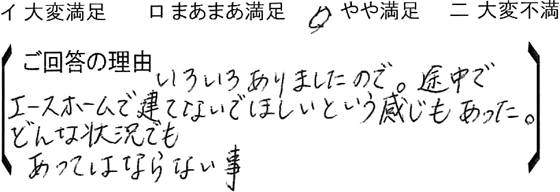 イ 大変満足　ロ まあまあ満足　ハ やや満足　ニ 大変不満
ご回答の理由
いろいろありましたので。途中で
エースホームで建てないでほしいという感じもあった。
どんな状況でも
あってはならない事